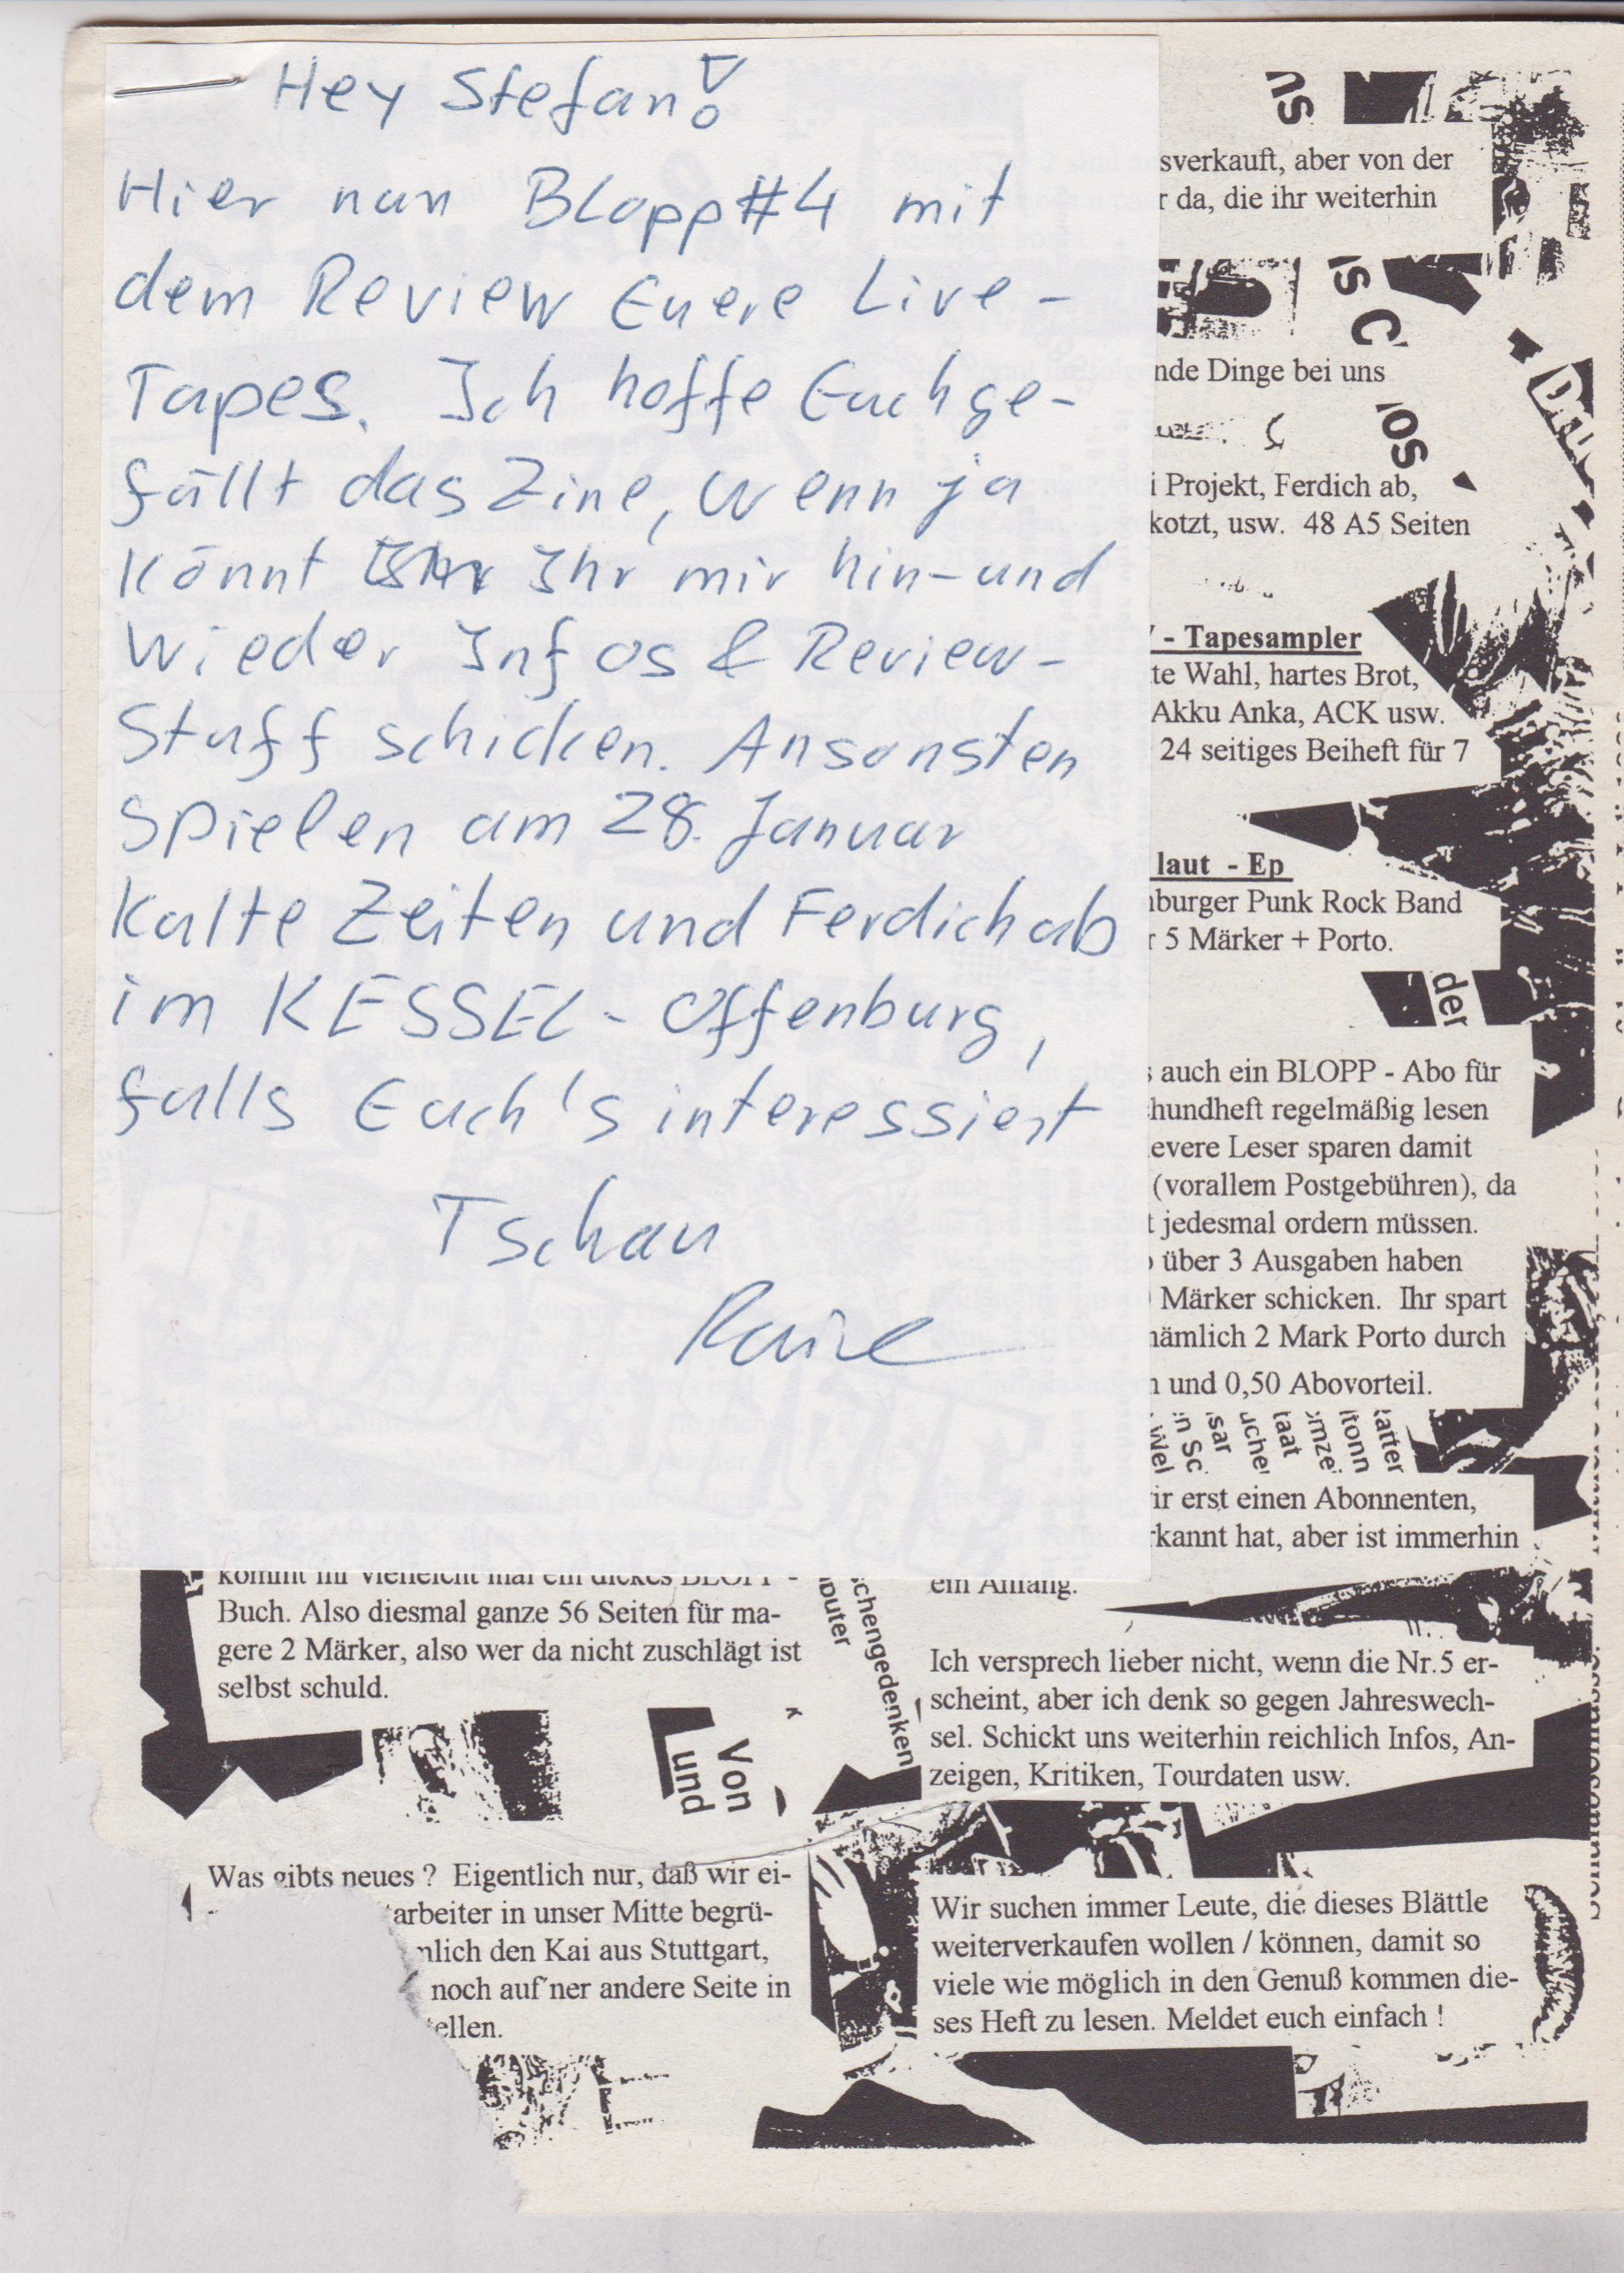 Hey Stefan!
Hier nun Blopp#4 mit
dem Review Euere Live-
Tapes. Ich hoffe Euch ge-
fällt das Zine, wenn ja
könnt Ihr mir hin-und
wieder Infos & Review-
Stuff schicken. Ansonsten
spielen am 28. Januar
Kalte Zeiten und Ferdich ab
im KESSEL-Offenburg,
falls Euch's interessiert
Tschau
sverkauft, aber von der
r da, die ihr weiterhin
IS C
nde Dinge bei uns
i Projekt, Ferdich ab,
kotzt, usw. 48 A5 Seiten
- Tapesampler
te Wahl, hartes Brot,
Akku Anka, ACK usw.
24 seitiges Beiheft für 7
laut - Ep
burger Punk Rock Band
r 5 Märker + Porto.
der
s auch ein BLOPP - Abo für
hundheft regelmäßig lesen
levere Leser sparen damit
(vorallem Postgebühren), da
t jedesmal ordern müssen.
über 3 Ausgaben haben
Märker schicken. Ihr spart
nämlich 2 Mark Porto durch
n und 0,50 Abovorteil.
ir erst einen Abonnenten,
rkannt hat, aber ist immerhin
ein Anfang.
kommt ihr vielleicht mal ein dickes BLOPP -
Buch. Also diesmal ganze 56 Seiten für ma-
gere 2 Märker, also wer da nicht zuschlägt ist
selbst schuld.
chengedenken
puter
Von
und
Was gibts neues ? Eigentlich nur, daß wir ei-
arbeiter in unser Mitte begrü-
mlich den Kai aus Stuttgart,
noch auf´ner andere Seite in
ellen.
Ich versprech lieber nicht, wenn die Nr.5 er-
scheint, aber ich denk so gegen Jahreswech-
sel. Schickt uns weiterhin reichlich Infos, An-
zeigen, Kritiken, Tourdaten usw.
Wir suchen immer Leute, die dieses Blättle
weiterverkaufen wollen / können, damit so
viele wie möglich in den Genuß kommen die-
ses Heft zu lesen. Meldet euch einfach !